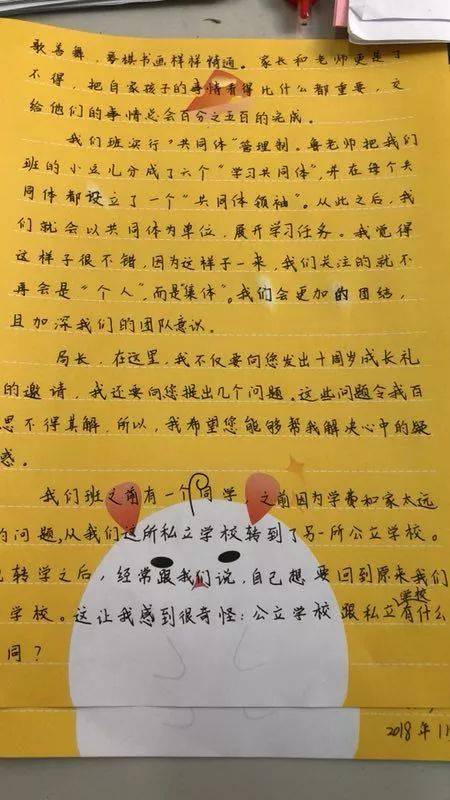 歌善舞，琴棋书画样样精通。家长和老师更是了
不得，把自家孩子的事情看得比什么都重要，交
给他们的事情总会百分之五百的完成。
我们班实行"共同体"管理制。鲁老师把我们
班的小豆儿分成了六个"学习共同体"，并在每个共
同体都设立了一个"共同体领袖"。从此之后，我
们就会以共同体为单位，展开学习任务。我觉得
这样子很不错，因为这样子一来，我们关注的就不
再会是"个人"，而是"集体"。我们会更加的团结，
且加深我们的团队意识。
局长，在这里，我不仅要向您发出十周岁成长礼
的邀请，我还要向您提出几个问题。这些问题令我百
思不得其解，所以，我希望您能够帮我解决心中的疑
惑。
我们班之前有一个同学，之前因为学费和家太远
的问题，从我们这所私立学校转到了另一所公立学校。
转学之后，经常跟我们说，自己想要回到原来我们
学校。这让我感到很奇怪：公立学校跟私立学校有什么
同？
2018年11